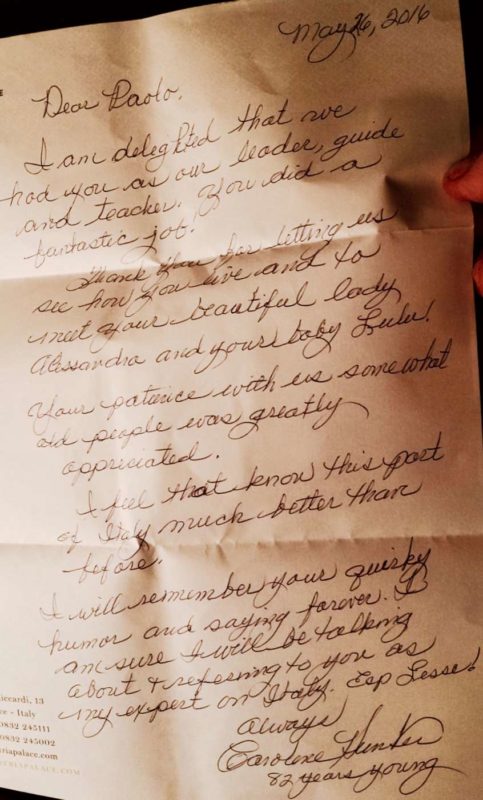 May 26, 2016
Dear Paolo,
I am delighted that we
had you as our leader, guide
and teacher. You did a
fantastic job!
Thank you for letting us
see how you live and to
meet your beautiful lady
Alessandra and your baby Lulu!
Your patience with us somewhat
old people was greatly
appriciated.
I feel that know this part
of Italy much better than
before.
I will remember your quirky
humor and saying forever. I
am sure I will be talking
about & refering to you as
my expert on Italy. Esp Lesse!
Always
Carolene
82 years young
iccardi, 13
ce - Italy
0832 245111
0832 245002
yriapalace.com
ERIAPALACE.COM